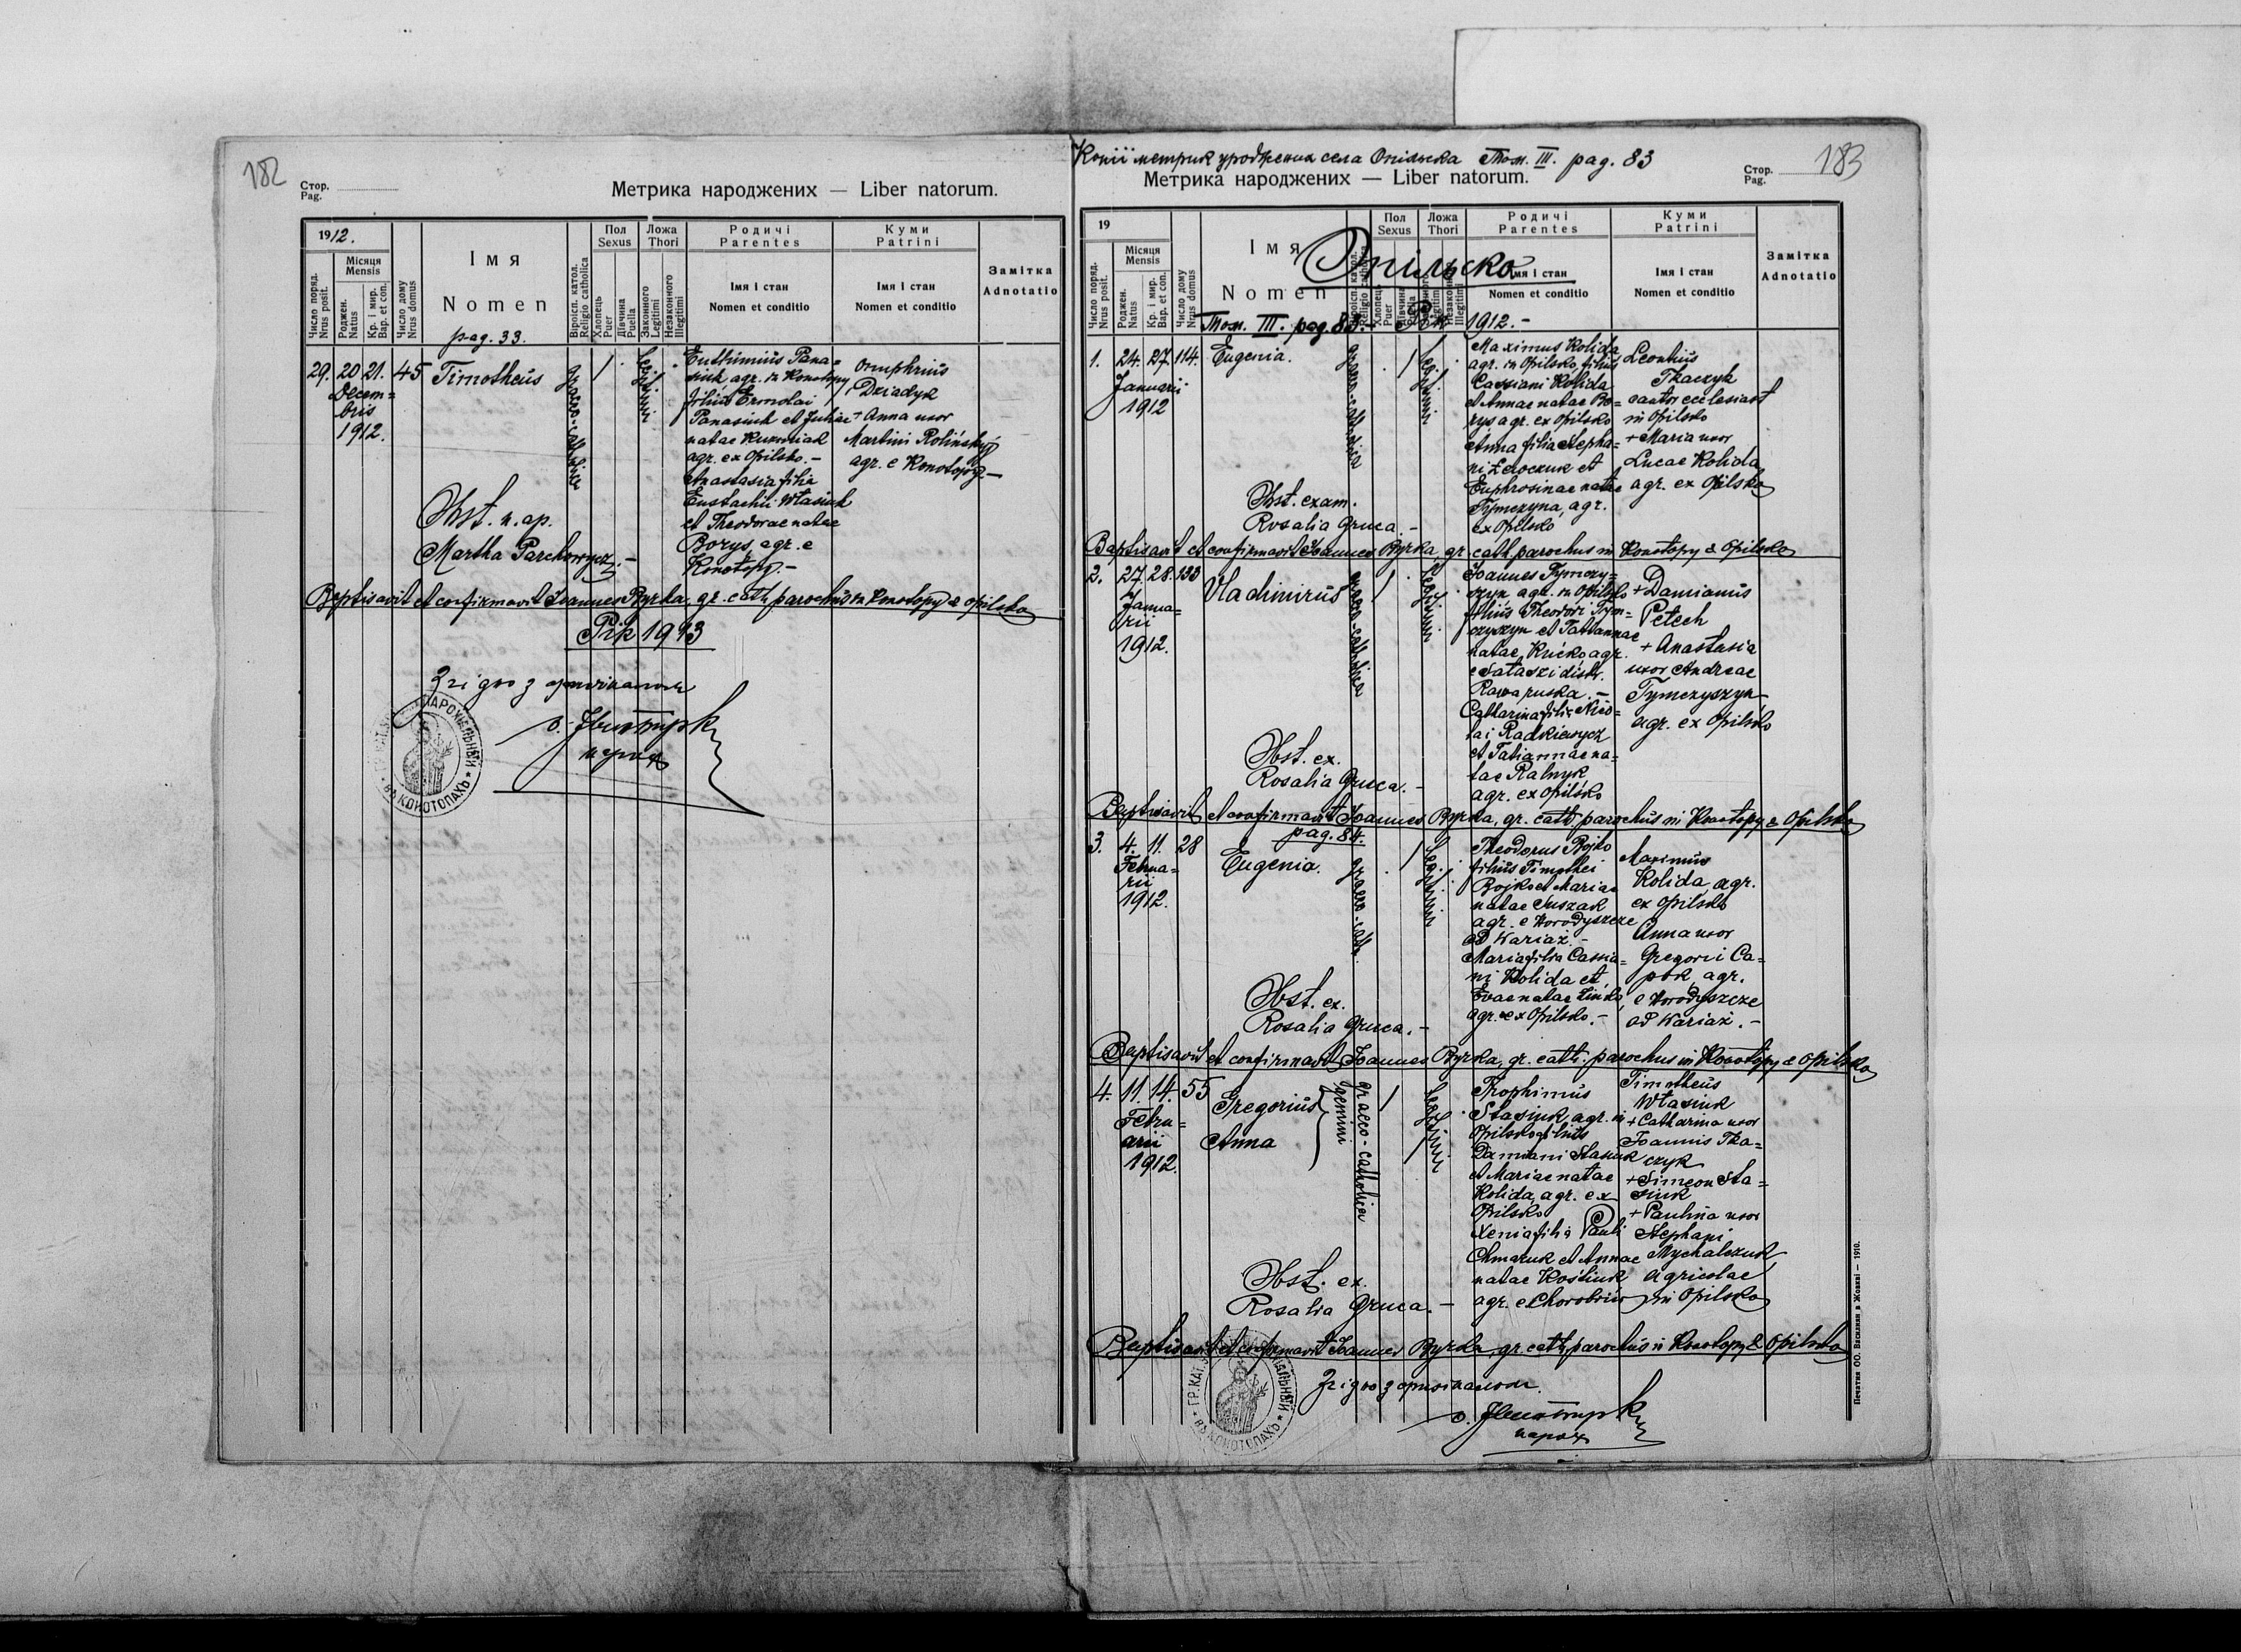 182
Стор.
Pag.
Метрика народжених — Liber natorum.
1912.
Число поряд.
Nrus posit.
Місяця
Mensis
Роджен.
Natus
Кр. і мир.
Bap. et con.
Число дому
Nrus domus
Імя
Nomen
pag. 33.
Віроісп. катол.
Religio catholica
Пол
Sexus
Хлопець
Puer
Дівчина
Puella
Ложа
Thori
Законного
Legitimi
Незаконного
Illegitimi
Родичі
Parentes
Імя і стан
Nomen et conditio
Куми
Patrini
Імя і стан
Nomen et conditio
Замітка
Adnotatio
29. 20 21. 45 Timotheus
Decem=
bris
1912.
graeco-catholica
1
Legitimi
Euthimius Pana=
siuk, agr. in Konotopy
filius Ermolai
Panasiuk et Juliae
natae
agr. ex Opilsko.-
Anastasia filia
Eustachii Własiuk
et Theodorae natae
Borys, agr. e
Konotopy.-
Onuphrius
Dziadyk
+ Anna uxor
Martini Roliński
agr. e Konotopy.-
Obst. n. ap.
Martha Parchowycz.-
Baptisavit et confirmavit Joannes Byrka, gr. cath. parochus in Konotopy & Opilsko
Рік 1913
Згідно з оригіналом
парох
ВЪ КОНОТОПАХЪ
Копії метрик уроджених села Опільска Том. III. pag. 83
183
Стор.
Pag.
Метрика народжених — Liber natorum.
19
Число поряд.
Nrus posit.
Місяця
Mensis
Роджен.
Natus
Кр. і мир.
Bap. et con.
Число дому
Nrus domus
Імя
Nomen
Опільско
Пол
Sexus
Хлопець
Puer
Ложа
Thori
Родичі
Parentes
Імя і стан
Nomen et conditio
Куми
Patrini
Імя і стан
Nomen et conditio
Замітка
Adnotatio
Том. III. pag. 83.- Рік 1912.-
1. 24. 27. 114. Eugenia.
Januarii
1912
graeco-catholica
1
Legitimi
Maximus Kolida
agr. in Opilsko, filius
Cassiani Kolida
et Annae natae Bo=
rys agr. ex Opilsko
Anna filia Stepha=
ni et
Euphrosinae natae
Tymczyna, agr.
ex Opilsko
Leontius
Tkaczyk
cantor ecclesiast
in Opilsko
+ Maria uxor
Lucae Kolida
agr. ex Opilsko
Obst. exam.
Rosalia Gruca.-
Baptisavit et confirmavit Joannes Byrka, gr. cath. parochus in Konotopy & Opilsko
2. 27. 28. 133 Vladimirus
Janua=
rii
1912.
graeco-catholica
1
Legitimi
Joannes Tymczy=
szyn, agr. in Opilsko
filius Theodori Tym=
czyszyn et Tatiannae
natae Kućko agr.
e Sałaszi distr.
Rawa ruska.-
Catharina filia Nico=
lai Radkiewycz
et Tatiannae na=
tae Ralnyk
agr. ex Opilsko
+ Damianus
Petech
+ Anastasia
uxor Andreae
Tymczyszyn
agr. ex Opilsko
Obst. ex.
Rosalia Gruca.-
Baptisavit et confirmavit Joannes Byrka, gr. cath. parochus in Konotopy & Opilsko
pag. 84.
3. 4. 11. 28 Eugenia.
Februa=
rii
1912.
graeco-cath.
1
Legitimi
Theodorus Bojko
filius Timothei
Bojko et Mariae
natae Suszak
agr. e Horodyszcze
ad Wariaż.-
Maria filia Cassia=
ni Kolida et
Evae natae
agr. ex Opilsko.-
Maximus
Kolida, agr.
ex Opilsko
Anna uxor
Gregorii Ca=
pok, agr.
e Horodyszcze
ad Wariaż.-
Obst. ex.
Rosalia Gruca.-
Baptisavit et confirmavit Joannes Byrka, gr. cath. parochus in Konotopy & Opilsko
4. 11. 14. 55 Gregorius
Anna
gemini
Febru=
arii
1912.
graeco-catholici
1
1
Legitimi
Trophimus
Stasiuk, agr. in
Opilsko, filius
Damiani Stasiuk
et Mariae natae
Kolida, agr. ex
Opilsko
Xenia filia Pauli
Chmaruk et Annae
natae Kostiuk
agr. e Chorobriw
Timotheus
Własiuk
+ Catharina uxor
Joannis Tka=
czyk
+ Simeon Sta=
siuk
+ Paulina uxor
Stephani
Mychalczuk
agricolae
in Opilsko
Obst. ex.
Rosalia Gruca.-
Baptisavit et confirmavit Joannes Byrka, gr. cath. parochus in Konotopy & Opilsko
Згідно з оригіналом.
парох
ВЪ КОНОТОПАХЪ
Печатня ОО. Василиян в Жовкві — 1910.